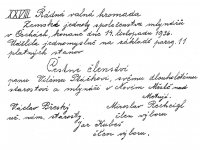 XXVIII. Řádná valná hromada
Zemské jednoty společenstev mlynářů
v Čechách, konaná dne 14. listopadu 1936.
Udělila jednomyslně na základě parag. 11
platných stanov
Čestné členství
panu Vilému Pláškovi, svému dlouholetému
starostovi a mlynáři v Novém Městě nad
Metují.
Václav Břeský Miroslav
nám. starosty. člen výboru.
Jan Kubeš
člen výboru.